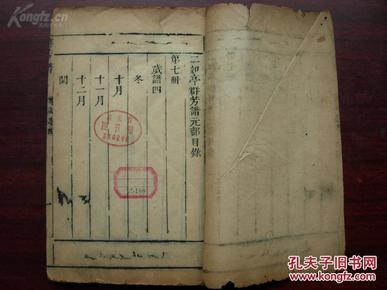 二如亭群芳譜元部目錄
第七冊
歲譜四
冬
十月
十一月
十二月
閏
Kongfz.com
孔夫子旧书网